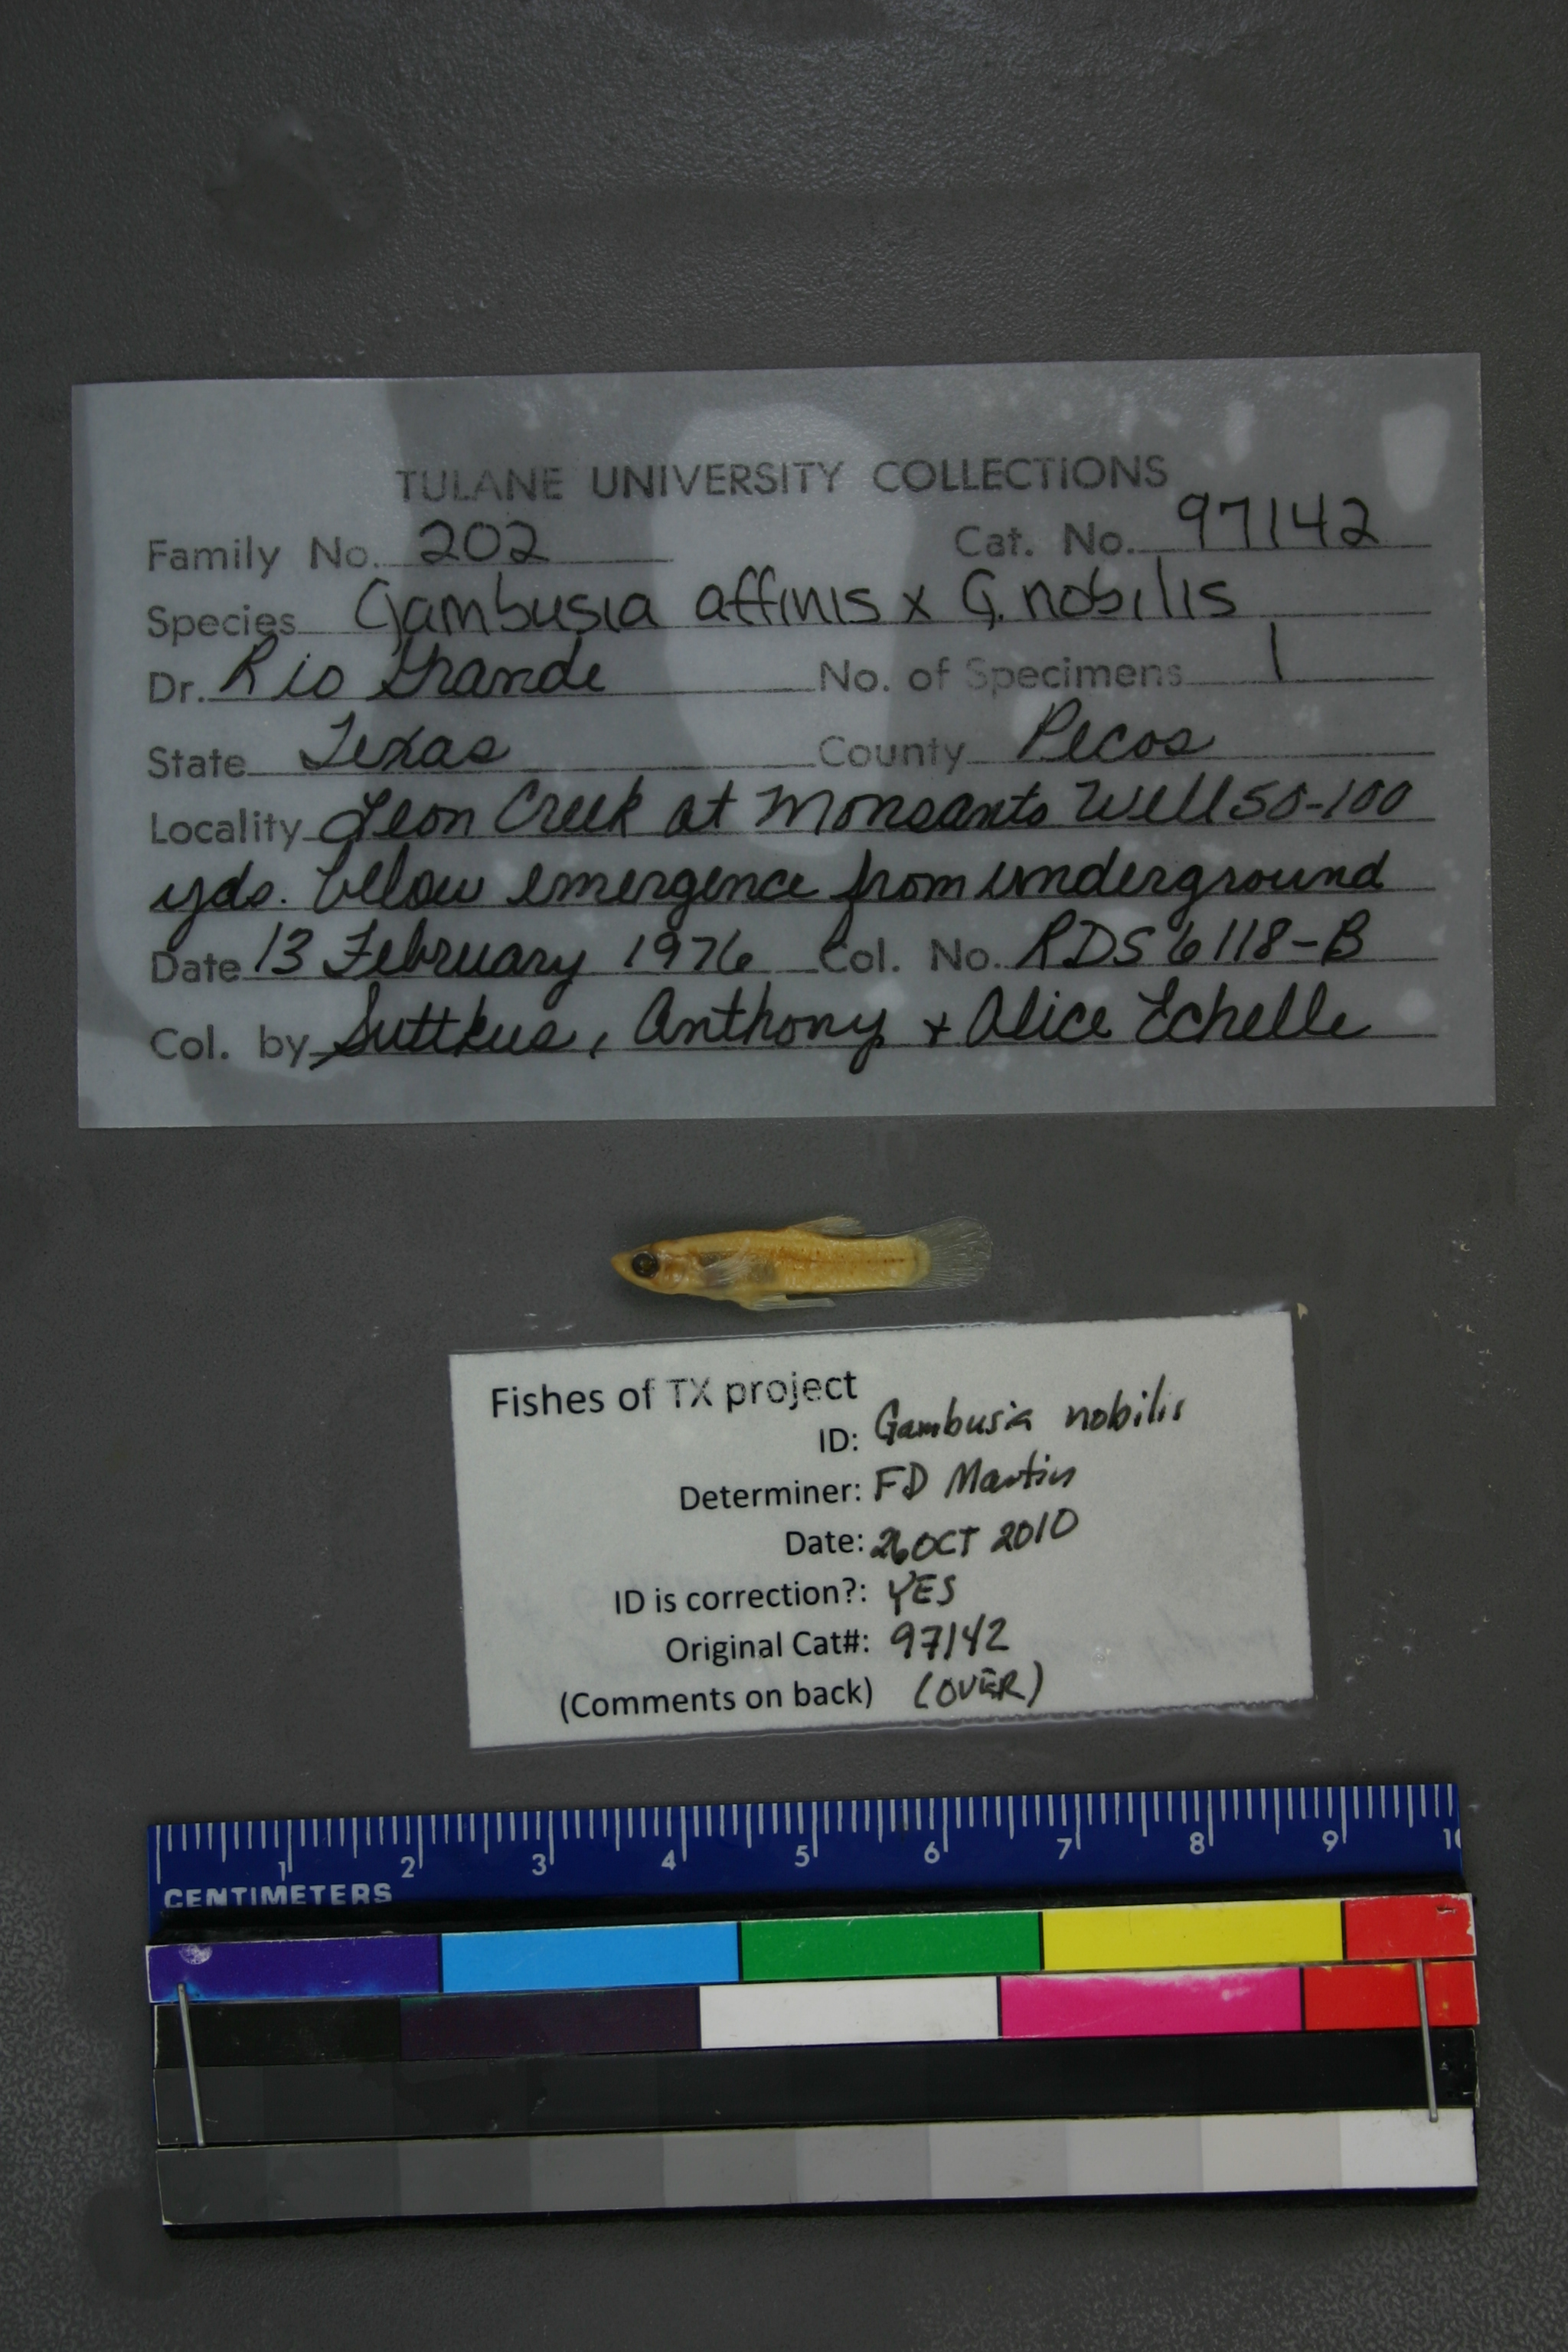 TULANE UNIVERSITY COLLECTIONS
Family No. 202 Cat. No. 97142
Species Gambusia affinis x G. nobilis
Dr. Rio Grande No. of Specimens 1
State Texas County Pecos
Locality Leon Creek at Monsanto Well 50-100
yds. below emergence from underground
Date 13 February 1976 Col. No. RDS 6118-B
Col. by Suttkus, Anthony + Alice Echelle
Fishes of TX project
ID: Gambusia nobilis
Determiner: FD Martin
Date: 26 OCT 2010
ID is correction?: YES
Original Cat#: 97142
(Comments on back) (OVER)
1 2 3 4 5 6 7 8 9 10
CENTIMETERS